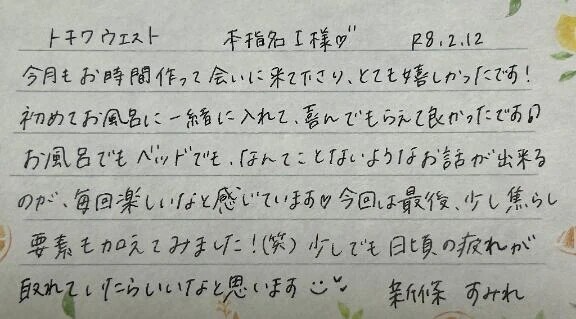 トキワウエスト 本指名I様♡" R8.2.12
今月もお時間作って会いに来て下さり、とても嬉しかったです!
初めてお風呂に一緒に入れて、喜んでもらえて良かったです♪
お風呂でもベッドでも、なんてことないようなお話が出来る
のが、毎回楽しいなと感じています♡今回は最後、少し焦らし
要素も加えてみました!(笑)少しでも日頃の疲れが
取れていたらいいなと思います 新條 すみれ